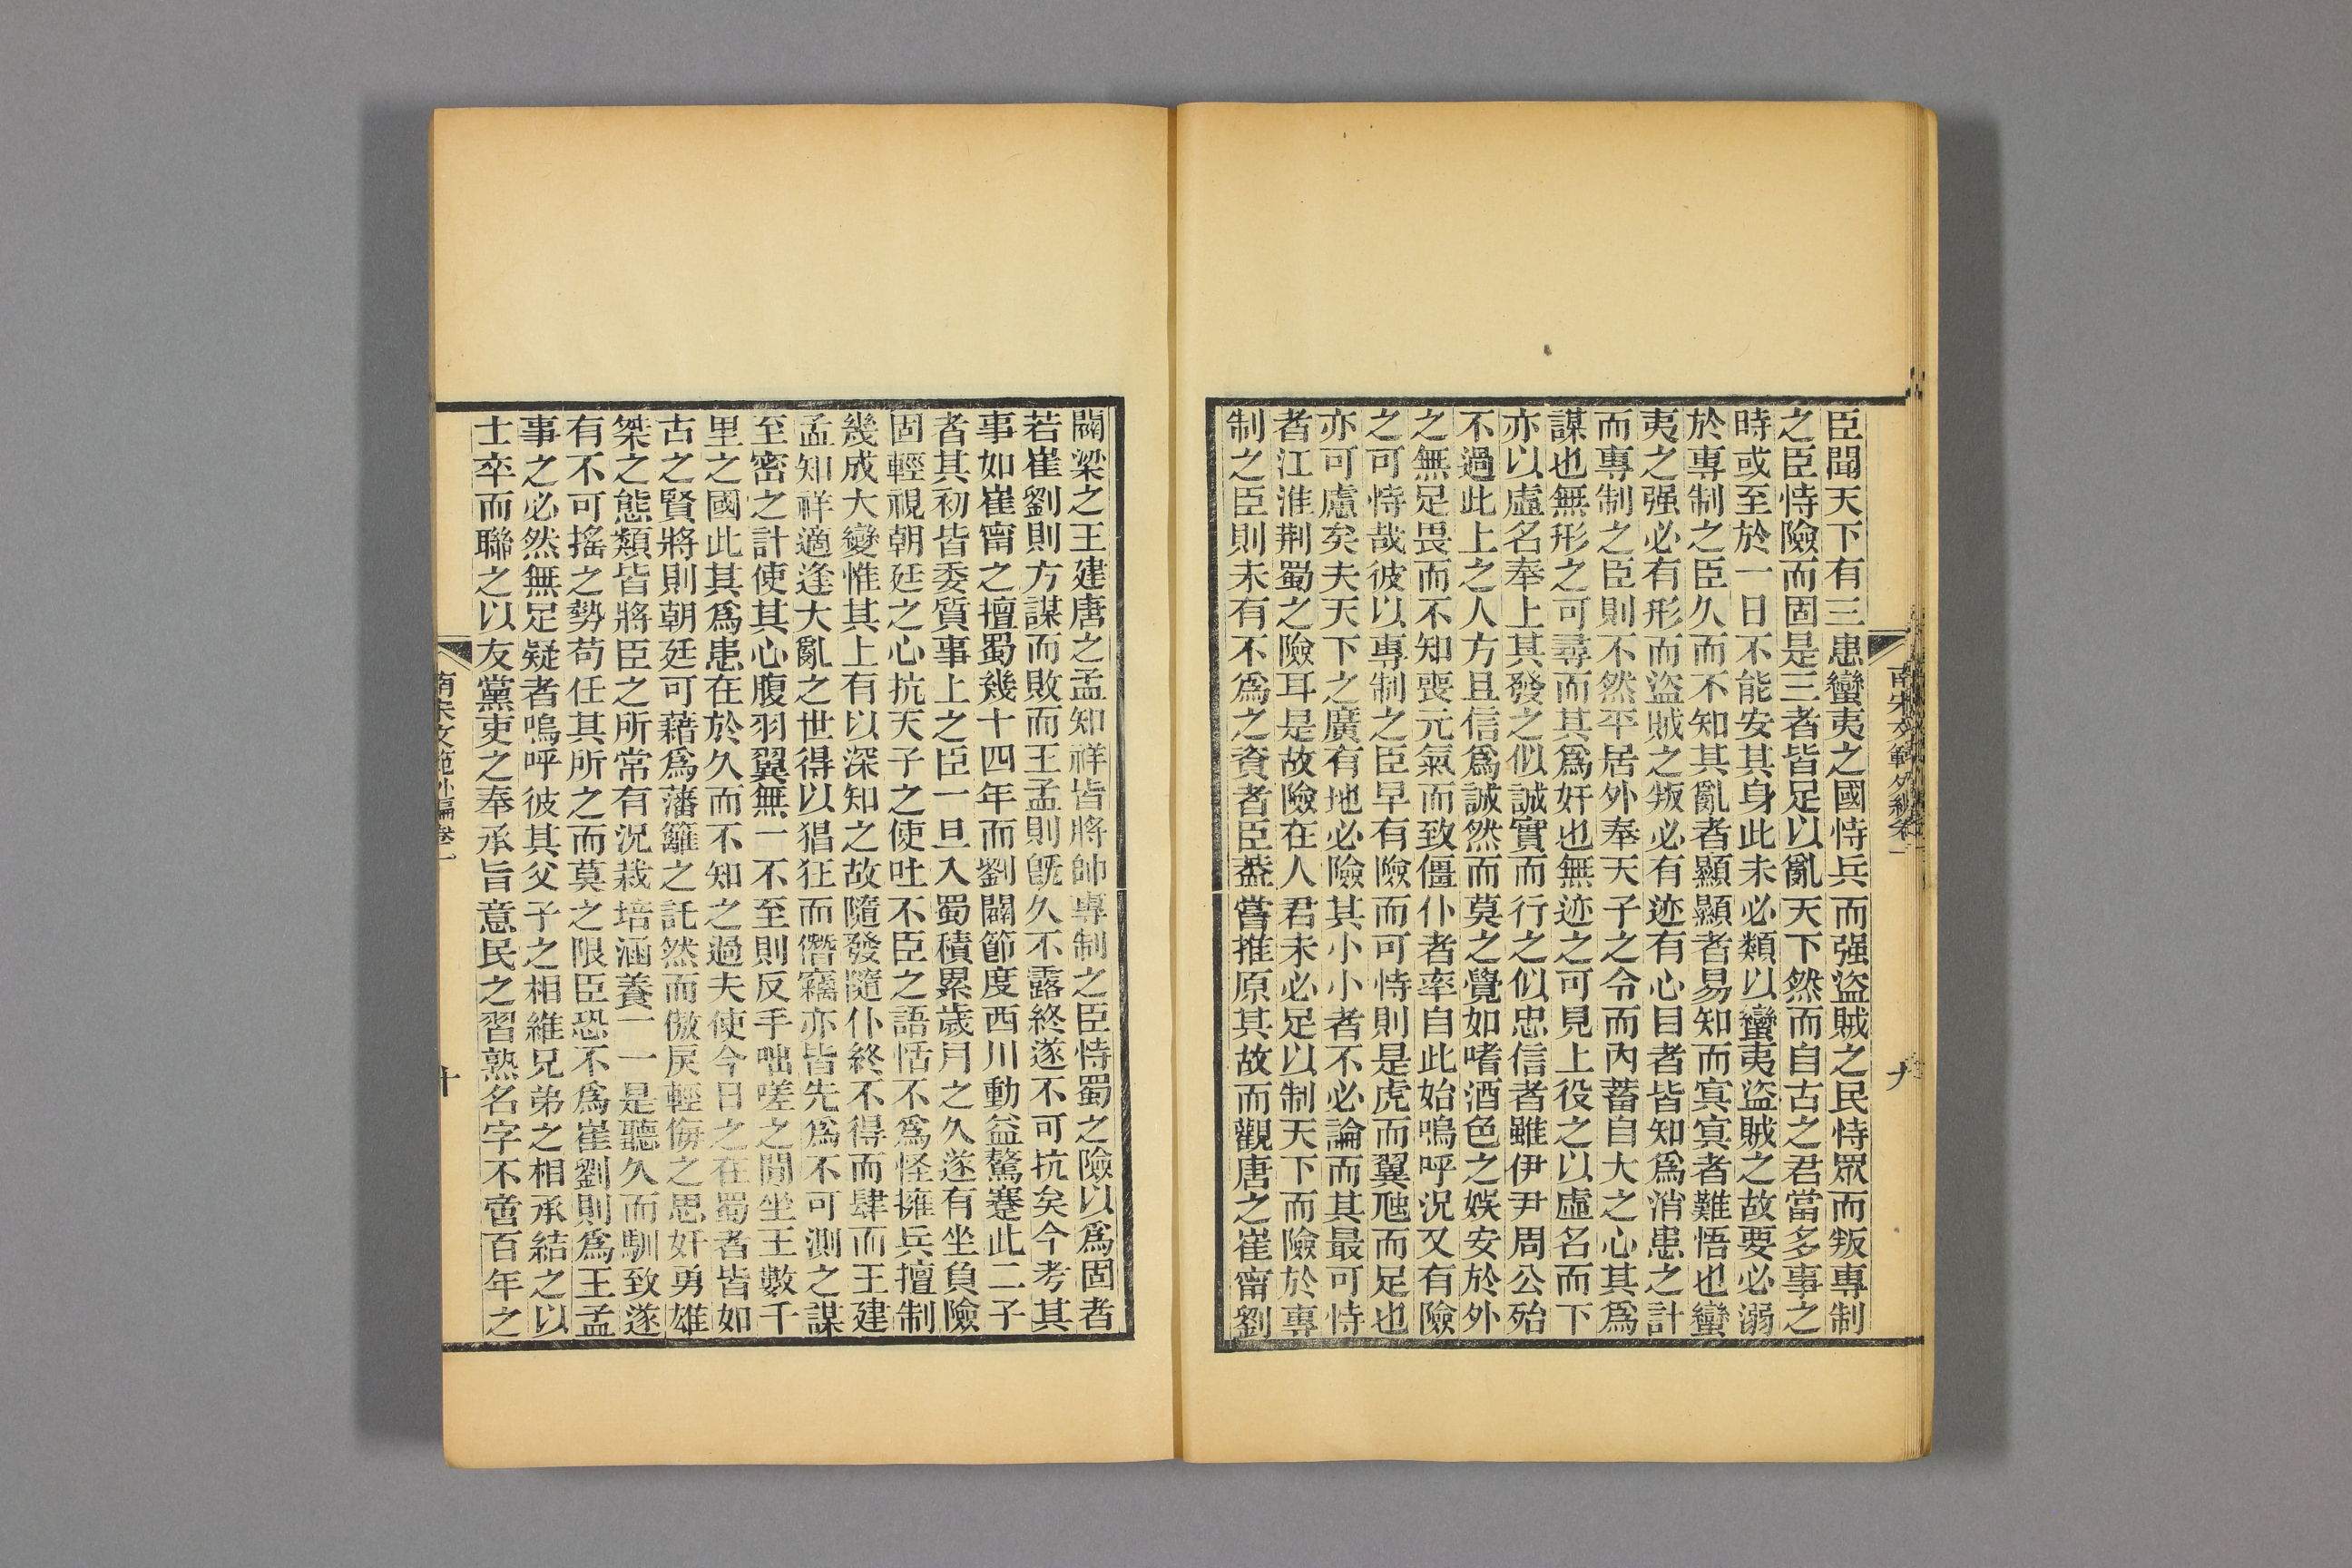 臣聞天下有三患蠻夷之國恃兵而强盜賊之民恃眾而叛專制
之臣恃險而固是三者皆足以亂天下然而自古之君當多事之
時或至於一日不能安其身此未必類以蠻夷盜賊之故要必溺
於專制之臣久而不知其亂者顯顯者易知而冥冥者難悟也蠻
夷之强必有形而盜賊之叛必有迹有心目者皆知爲消患之計
而專制之臣則不然平居外奉天子之令而內蓄自大之心其爲
謀也無形之可尋而其爲奸也無迹之可見上役之以虛名而下
亦以虛名奉上其發之似誠實而行之似忠信者雖伊尹周公殆
不過此上之人方且信爲誠然而莫之覺如嗜酒色之娛安於外
之無足畏而不知喪元氣而致僵仆者率自此始嗚呼況又有險
之可恃哉彼以專制之臣早有險而可恃則是虎而翼虺而足也
亦可慮矣夫天下之廣有地必險其小小者不必論而其最可恃
者江淮荆蜀之險耳是故險在人君未必足以制天下而險於專
制之臣則未有不爲之資者臣葢嘗推原其故而觀唐之崔甯劉
闢梁之王建唐之孟知祥皆將帥專制之臣恃蜀之險以爲固者
若崔劉則方謀而敗而王孟則旣久不露終遂不可抗矣今考其
事如崔甯之擅蜀幾十四年而劉闢節度西川動益驁蹇此二子
者其初皆委質事上之臣一旦入蜀積累歲月之久遂有坐負險
固輕視朝廷之心抗天子之使吐不臣之語恬不爲怪擁兵擅制
幾成大變惟其上有以深知之故隨發隨仆終不得而肆而王建
孟知祥適逢大亂之世得以猖狂而僭竊亦皆先爲不可測之謀
至密之計使其心腹羽翼無一不至則反手咄嗟之閒坐王數千
里之國此其爲患在於久而不知之過夫使今日之在蜀者皆如
古之賢將則朝廷可藉爲藩籬之託然而傲戾輕侮之思奸勇雄
桀之態類皆將臣之所常有況栽培涵養一一是聽久而馴致遂
有不可搖之勢苟任其所之而莫之限臣恐不爲崔劉則爲王孟
事之必然無足疑者嗚呼彼其父子之相維兄弟之相承結之以
士卒而聯之以友黨吏之奉承旨意民之習熟名字不啻百年之
南宋文範外編卷一
九
南宋文範外編卷一
十